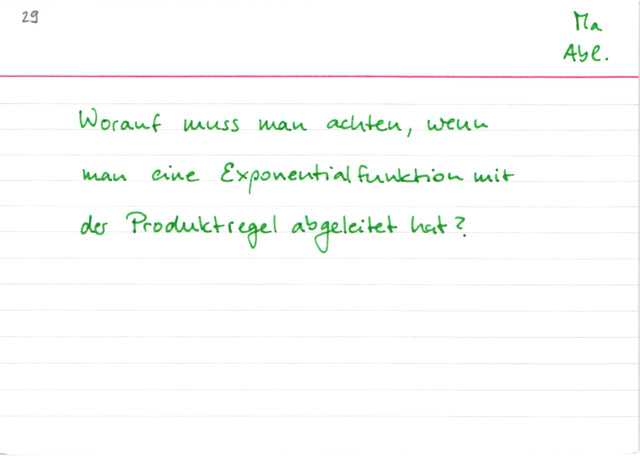 29
Ma
Abl.
Worauf muss man achten, wenn
man eine Exponentialfunktion mit
der Produktregel abgeleitet hat?